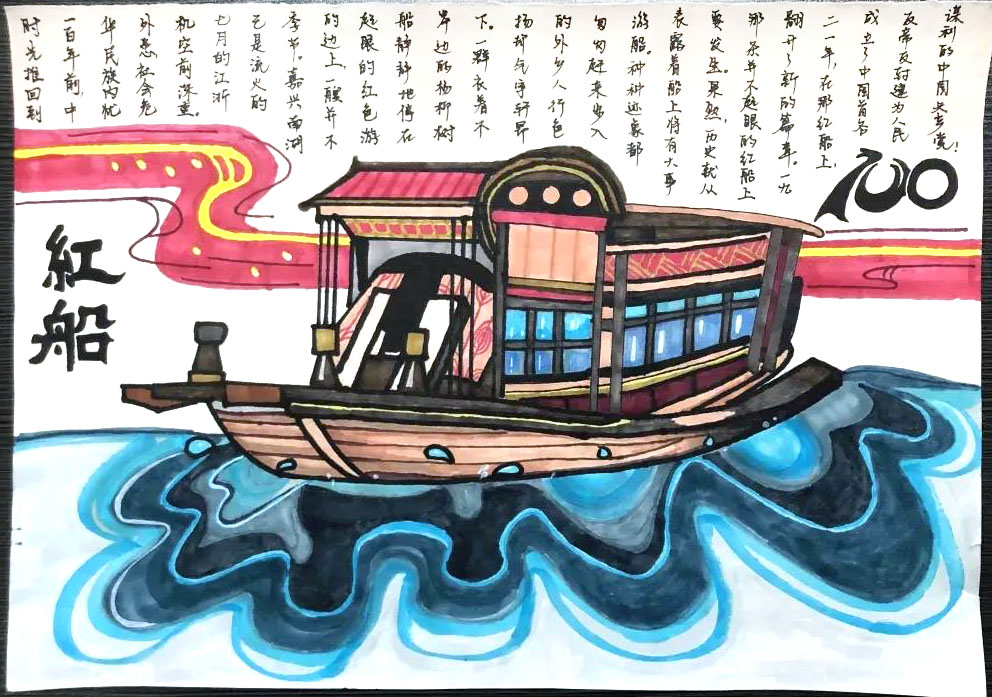 时光推回到
一百年前，中
华民族内忧
外患，社会危
机空前深重。
七月的江浙
已是流火的
季节。嘉兴南湖
的边上，一艘并不
起眼的红色游
船静静地停在
岸边的杨柳树
下。一群衣着不
扬却气宇轩昂
的外乡人行色
匆匆赶来步入
游船。种种迹象都
表露着船上将有大事
要发生。果然，历史就从
那条并不起眼的红船上
翻开了新的篇章。一九
二一年，在那红船上，
成立了中国首名
反帝反封建为人民
谋利的中国共产党！
100
紅船